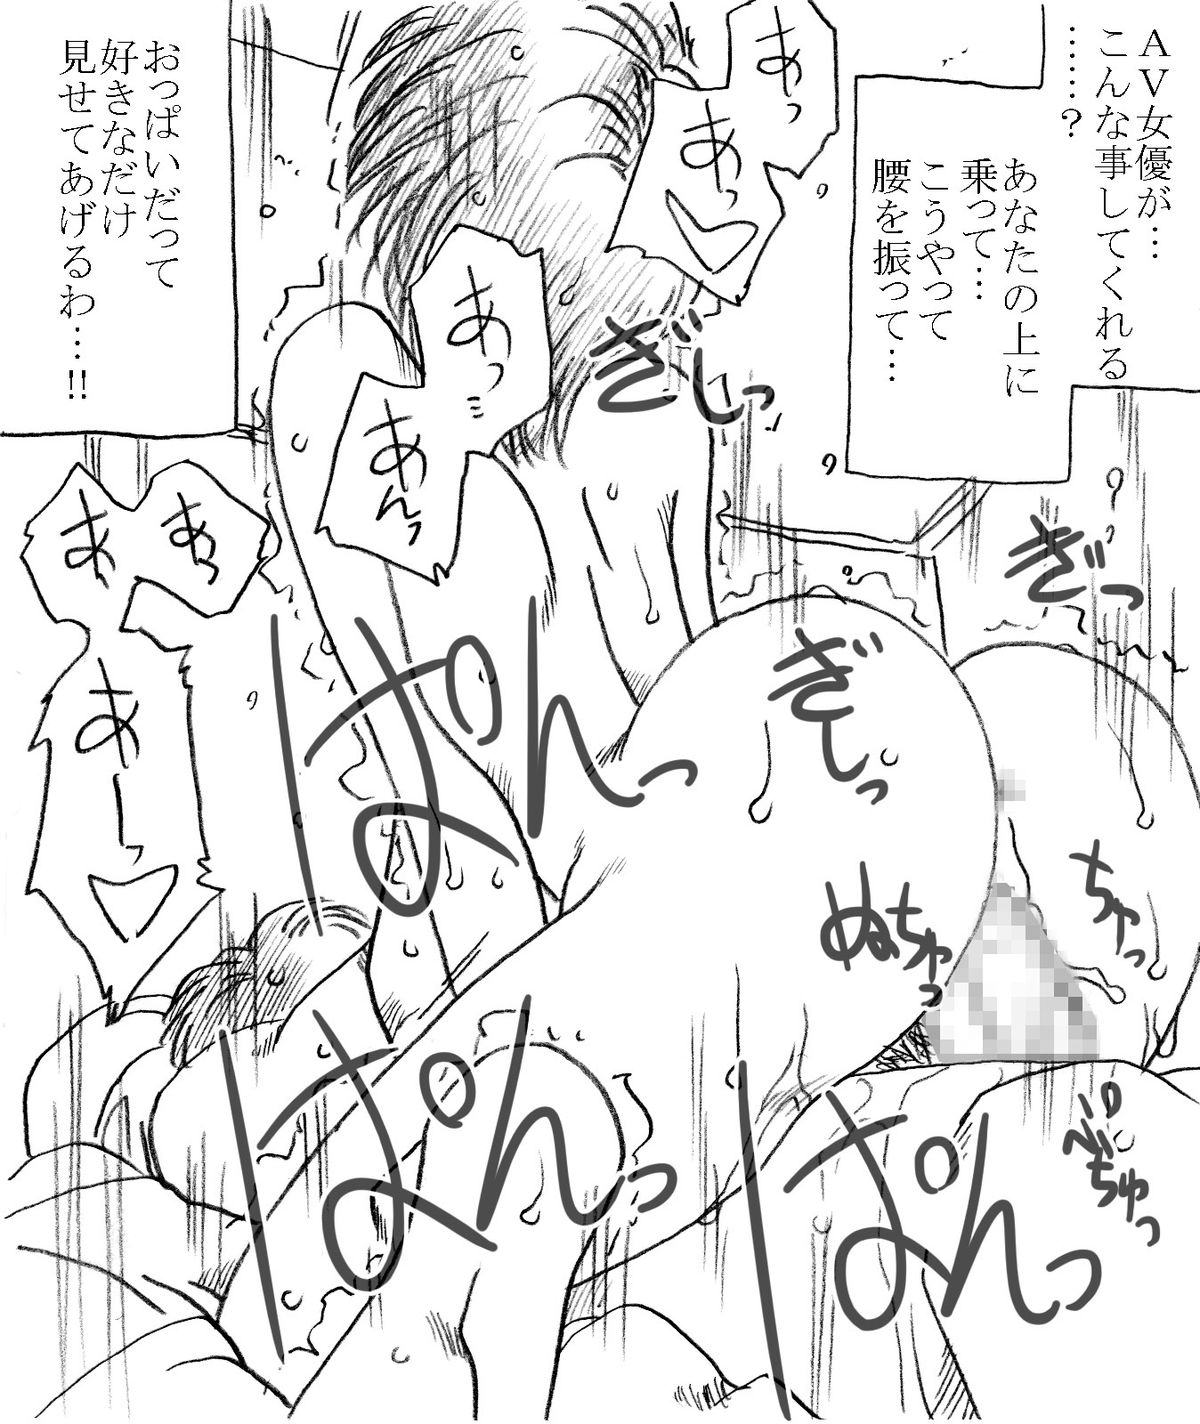 AV女優が…
こんな事してくれる
……?
あなたの上に
乗って…
こうやって
腰を振って…
あっ
あっ
ぎしっ
あっ
あんっ
おっぱいだって
好きなだけ
見せてあげるわ…!!
ぎっ
ぎしっ
あぁ
あぁ
あーっ
ぱんっ
ちゅっ
ぬちゅっ
ぱんっ
ぱんっ
ぺちゅっ